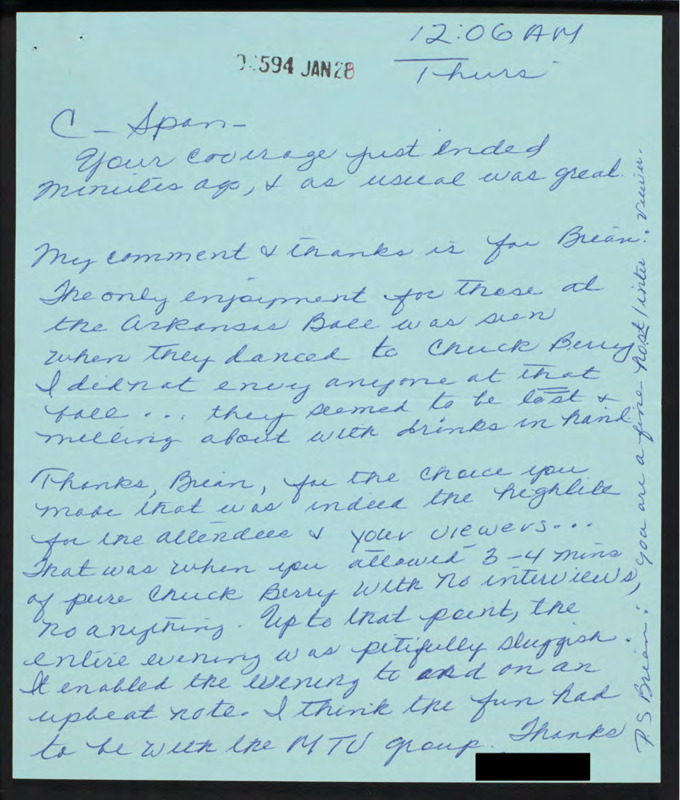 12:06 AM
594 JAN 28
Thurs
C-Span-
Your coverage just ended
minutes ago, & as usual was great.
My comment & thanks is for Brian.
The only enjoyment for those at
the Arkansas Ball was seen
when they danced to Chuck Berry
I did not envy anyone at that
ball... they seemed to be lost &
milling about with drinks in hand
Thanks, Brian, for the choice you
made that was indeed the highlite
for the attendees & your viewers...
That was when you allowed 3-4 mins
of pure Chuck Berry with no interviews,
no anything. Up to that point, the
entire evening was pitifully sluggish.
It enabled the evening to end on an
upbeat note. I think the fun had
to be with the MTV group. Thanks
P.S Brian: you are a fine host/inter-viewer.